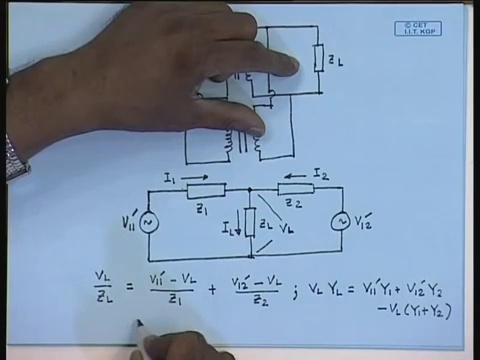 © CET
I.I.T. KGP
Z_L
I₁ I₂
Z₁ Z₂
V₁₁′ I_L Z_L V_L V₁₂′
V_L/Z_L = (V₁₁′ − V_L)/Z₁ + (V₁₂′ − V_L)/Z₂ ; V_L Y_L = V₁₁′Y₁ + V₁₂′Y₂
− V_L(Y₁+Y₂)